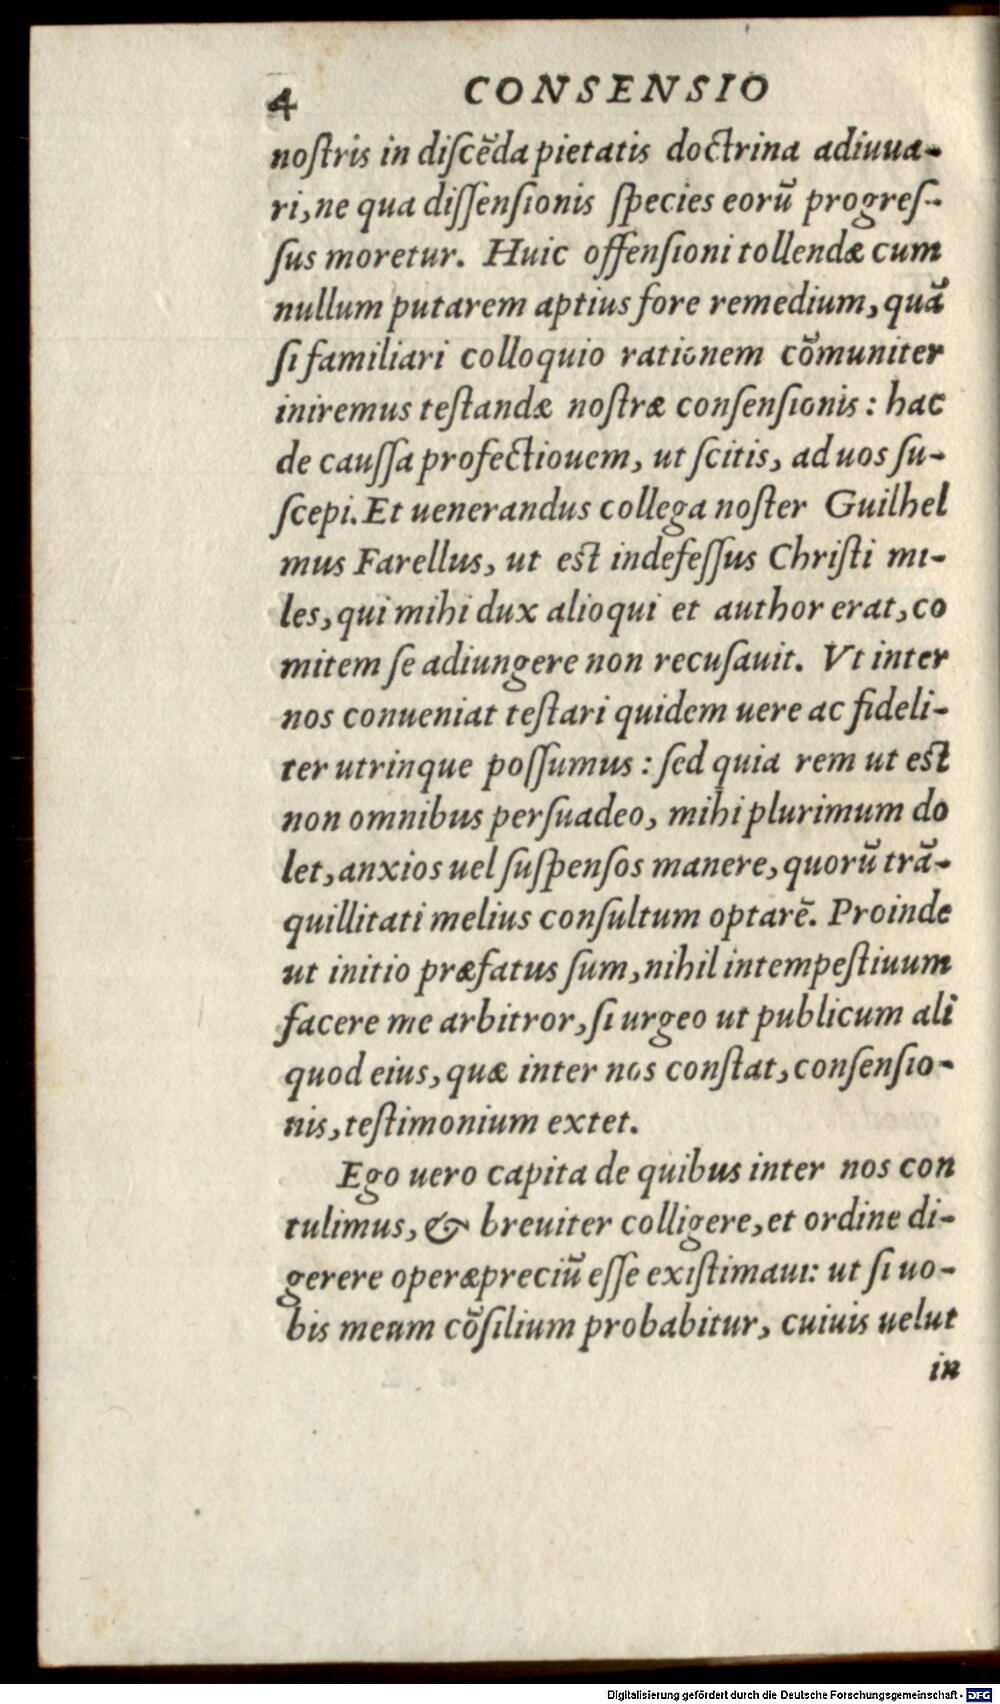 4 CONSENSIO
noſtris in diſcēda pietatis doctrina adiuua-
ri, ne qua diſſenſionis ſpecies eorū progreſ-
ſus moretur. Huic offenſioni tollendæ cum
nullum putarem aptius fore remedium, quā
ſi familiari colloquio rationem cōmuniter
iniremus teſtandæ noſtræ conſenſionis: hac
de cauſſa profectiouem, ut ſcitis, ad uos ſu-
ſcepi. Et uenerandus collega noſter Guilhel
mus Farellus, ut eſt indefeſſus Chriſti mi-
les, qui mihi dux alioqui et author erat, co
mitem ſe adiungere non recuſauit. Vt inter
nos conueniat teſtari quidem uere ac fideli-
ter utrinque poſſumus: ſed quia rem ut eſt
non omnibus perſuadeo, mihi plurimum do
let, anxios uel ſuſpenſos manere, quorū trā-
quillitati melius conſultum optarē. Proinde
ut initio præfatus ſum, nihil intempeſtiuum
facere me arbitror, ſi urgeo ut publicum ali
quod eius, quæ inter nos conſtat, conſenſio-
nis, teſtimonium extet.
Ego uero capita de quibus inter nos con
tulimus, & breuiter colligere, et ordine di-
gerere operæpreciū eſſe exiſtimaui: ut ſi uo-
bis meum cōſilium probabitur, cuiuis uelut
in
Digitalisierung gefördert durch die Deutsche Forschungsgemeinschaft - DFG